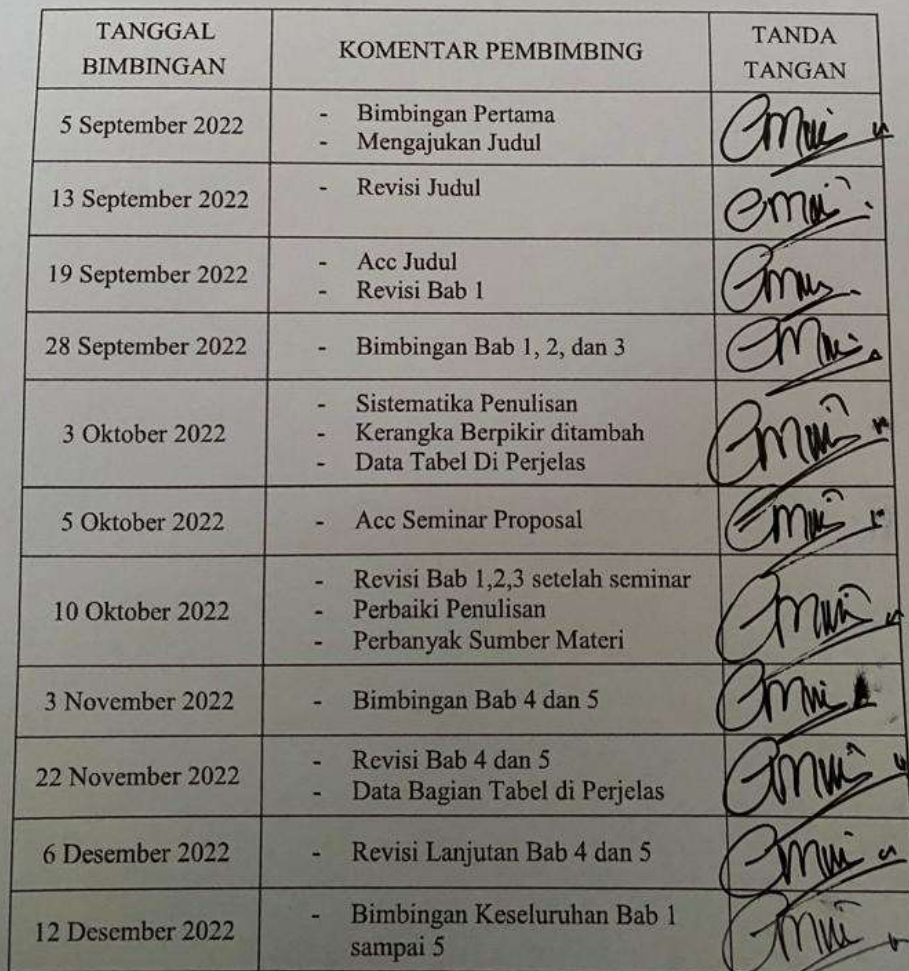 TANGGAL BIMBINGAN KOMENTAR PEMBIMBING TANDA TANGAN
5 September 2022 - Bimbingan Pertama
- Mengajukan Judul
13 September 2022 - Revisi Judul
19 September 2022 - Acc Judul
- Revisi Bab 1
28 September 2022 - Bimbingan Bab 1, 2, dan 3
3 Oktober 2022 - Sistematika Penulisan
- Kerangka Berpikir ditambah
- Data Tabel Di Perjelas
5 Oktober 2022 - Acc Seminar Proposal
10 Oktober 2022 - Revisi Bab 1,2,3 setelah seminar
- Perbaiki Penulisan
- Perbanyak Sumber Materi
3 November 2022 - Bimbingan Bab 4 dan 5
22 November 2022 - Revisi Bab 4 dan 5
- Data Bagian Tabel di Perjelas
6 Desember 2022 - Revisi Lanjutan Bab 4 dan 5
12 Desember 2022 - Bimbingan Keseluruhan Bab 1
sampai 5